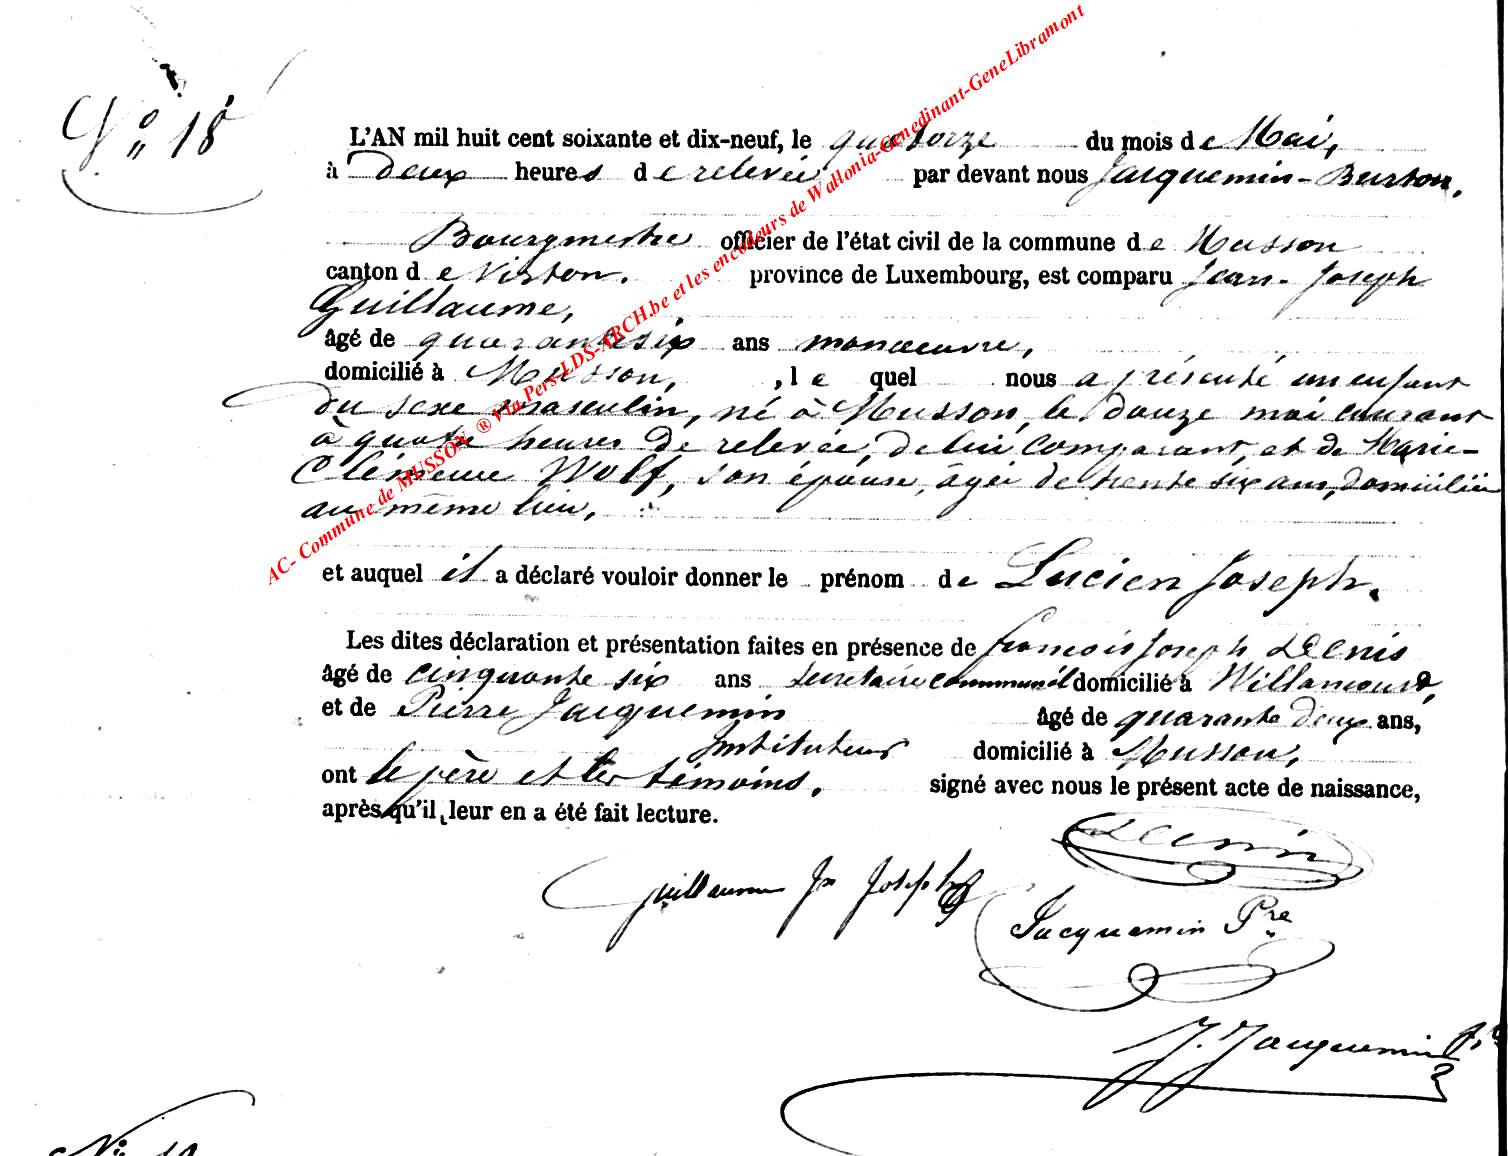 N° 18
L'AN mil huit cent soixante et dix-neuf, le quatorze du mois de Mai,
à Deux heures de relevée par devant nous Jacquemin-Burton,
Bourgmestre officier de l'état civil de la commune de Musson
canton de Virton. province de Luxembourg, est comparu Jean-Joseph
Guillaume,
âgé de quarante six ans manœuvre,
domicilié à Musson, , le quel nous a présenté un enfant
du sexe masculin, né à Musson, le douze mai courant
à quatre heures de relevée, de lui comparant, et de Marie-
Clémence Wolf, son épouse, âgée de trente six ans, domiciliée
au même lieu,
et auquel il a déclaré vouloir donner le prénom de Lucien Joseph.
Les dites déclaration et présentation faites en présence de François Joseph Denis
âgé de cinquante six ans secrétaire communal domicilié à Willancourt,
et de Pierre Jacquemin âgé de quarante deux ans,
Instituteur domicilié à Musson,
ont le père et les témoins, signé avec nous le présent acte de naissance,
après qu'il leur en a été fait lecture.
Denis
Guillaume Jn Joseph
Jacquemin Pre
J. Jacquemin
AC- Commune de MUSSON ® Via Pers-LDS-ARCH.be et les encodeurs de Wallonia-Genedinant-GeneLibramont